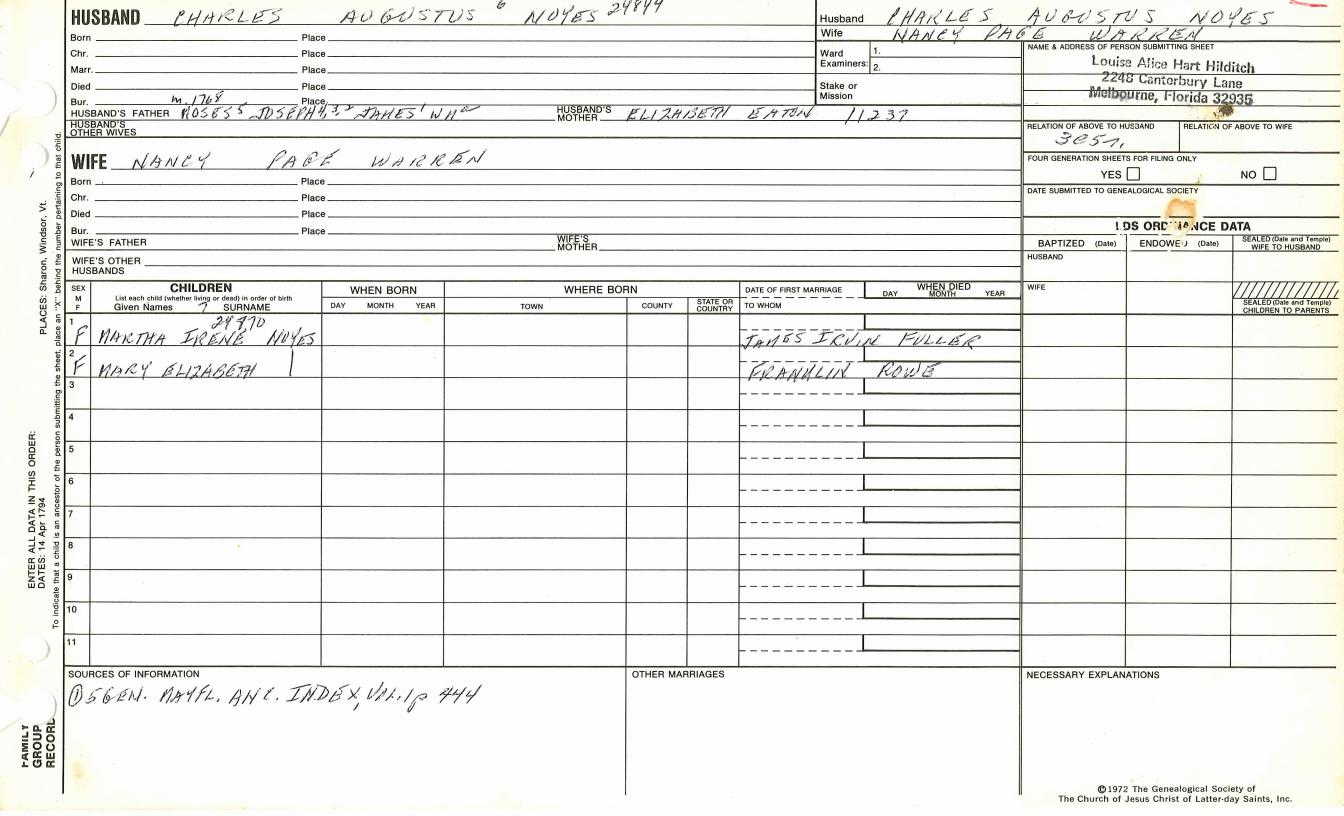 HUSBAND CHARLES AUGUSTUS 6 NOYES 24844
Born Place
Chr. Place
Marr. Place
Died Place
Bur. m. 1768 Place
HUSBAND'S FATHER MOSES5 JOSEPH4,3,2 JAMES1 Wm HUSBAND'S MOTHER ELIZABETH EATON 11237
HUSBAND'S OTHER WIVES
WIFE NANCY PAGE WARREN
Born Place
Chr. Place
Died Place
Bur. Place
WIFE'S FATHER WIFE'S MOTHER
WIFE'S OTHER HUSBANDS
Husband CHARLES AUGUSTUS NOYES
Wife NANCY PAGE WARREN
Ward Examiners: 1.
2.
Stake or Mission
NAME & ADDRESS OF PERSON SUBMITTING SHEET
Louise Alice Hart Hilditch
2248 Canterbury Lane
Melbourne, Florida 32935
RELATION OF ABOVE TO HUSBAND RELATION OF ABOVE TO WIFE
FOUR GENERATION SHEETS FOR FILING ONLY
YES NO
DATE SUBMITTED TO GENEALOGICAL SOCIETY
LDS ORDINANCE DATA
BAPTIZED (Date) ENDOWED (Date) SEALED (Date and Temple) WIFE TO HUSBAND
HUSBAND
WIFE
SEALED (Date and Temple) CHILDREN TO PARENTS
SEX M F
CHILDREN
List each child (whether living or dead) in order of birth
Given Names 7 SURNAME
WHEN BORN
DAY MONTH YEAR
WHERE BORN
TOWN COUNTY STATE OR COUNTRY
DATE OF FIRST MARRIAGE
TO WHOM
WHEN DIED
DAY MONTH YEAR
24970
1 F MARTHA IRENE NOYES JAMES IRVIN FULLER
2 F MARY ELIZABETH FRANKLIN ROWE
3
4
5
6
7
8
9
10
11
SOURCES OF INFORMATION
① 5 GEN. MAYFL. ANC. INDEX, Vol. 1 p 444
OTHER MARRIAGES
NECESSARY EXPLANATIONS
©1972 The Genealogical Society of
The Church of Jesus Christ of Latter-day Saints, Inc.
FAMILY GROUP RECORD
ENTER ALL DATA IN THIS ORDER:
DATES: 14 Apr 1794
PLACES: Sharon, Windsor, Vt.
To indicate that a child is an ancestor of the person submitting the sheet, place an "X" behind the number pertaining to that child.